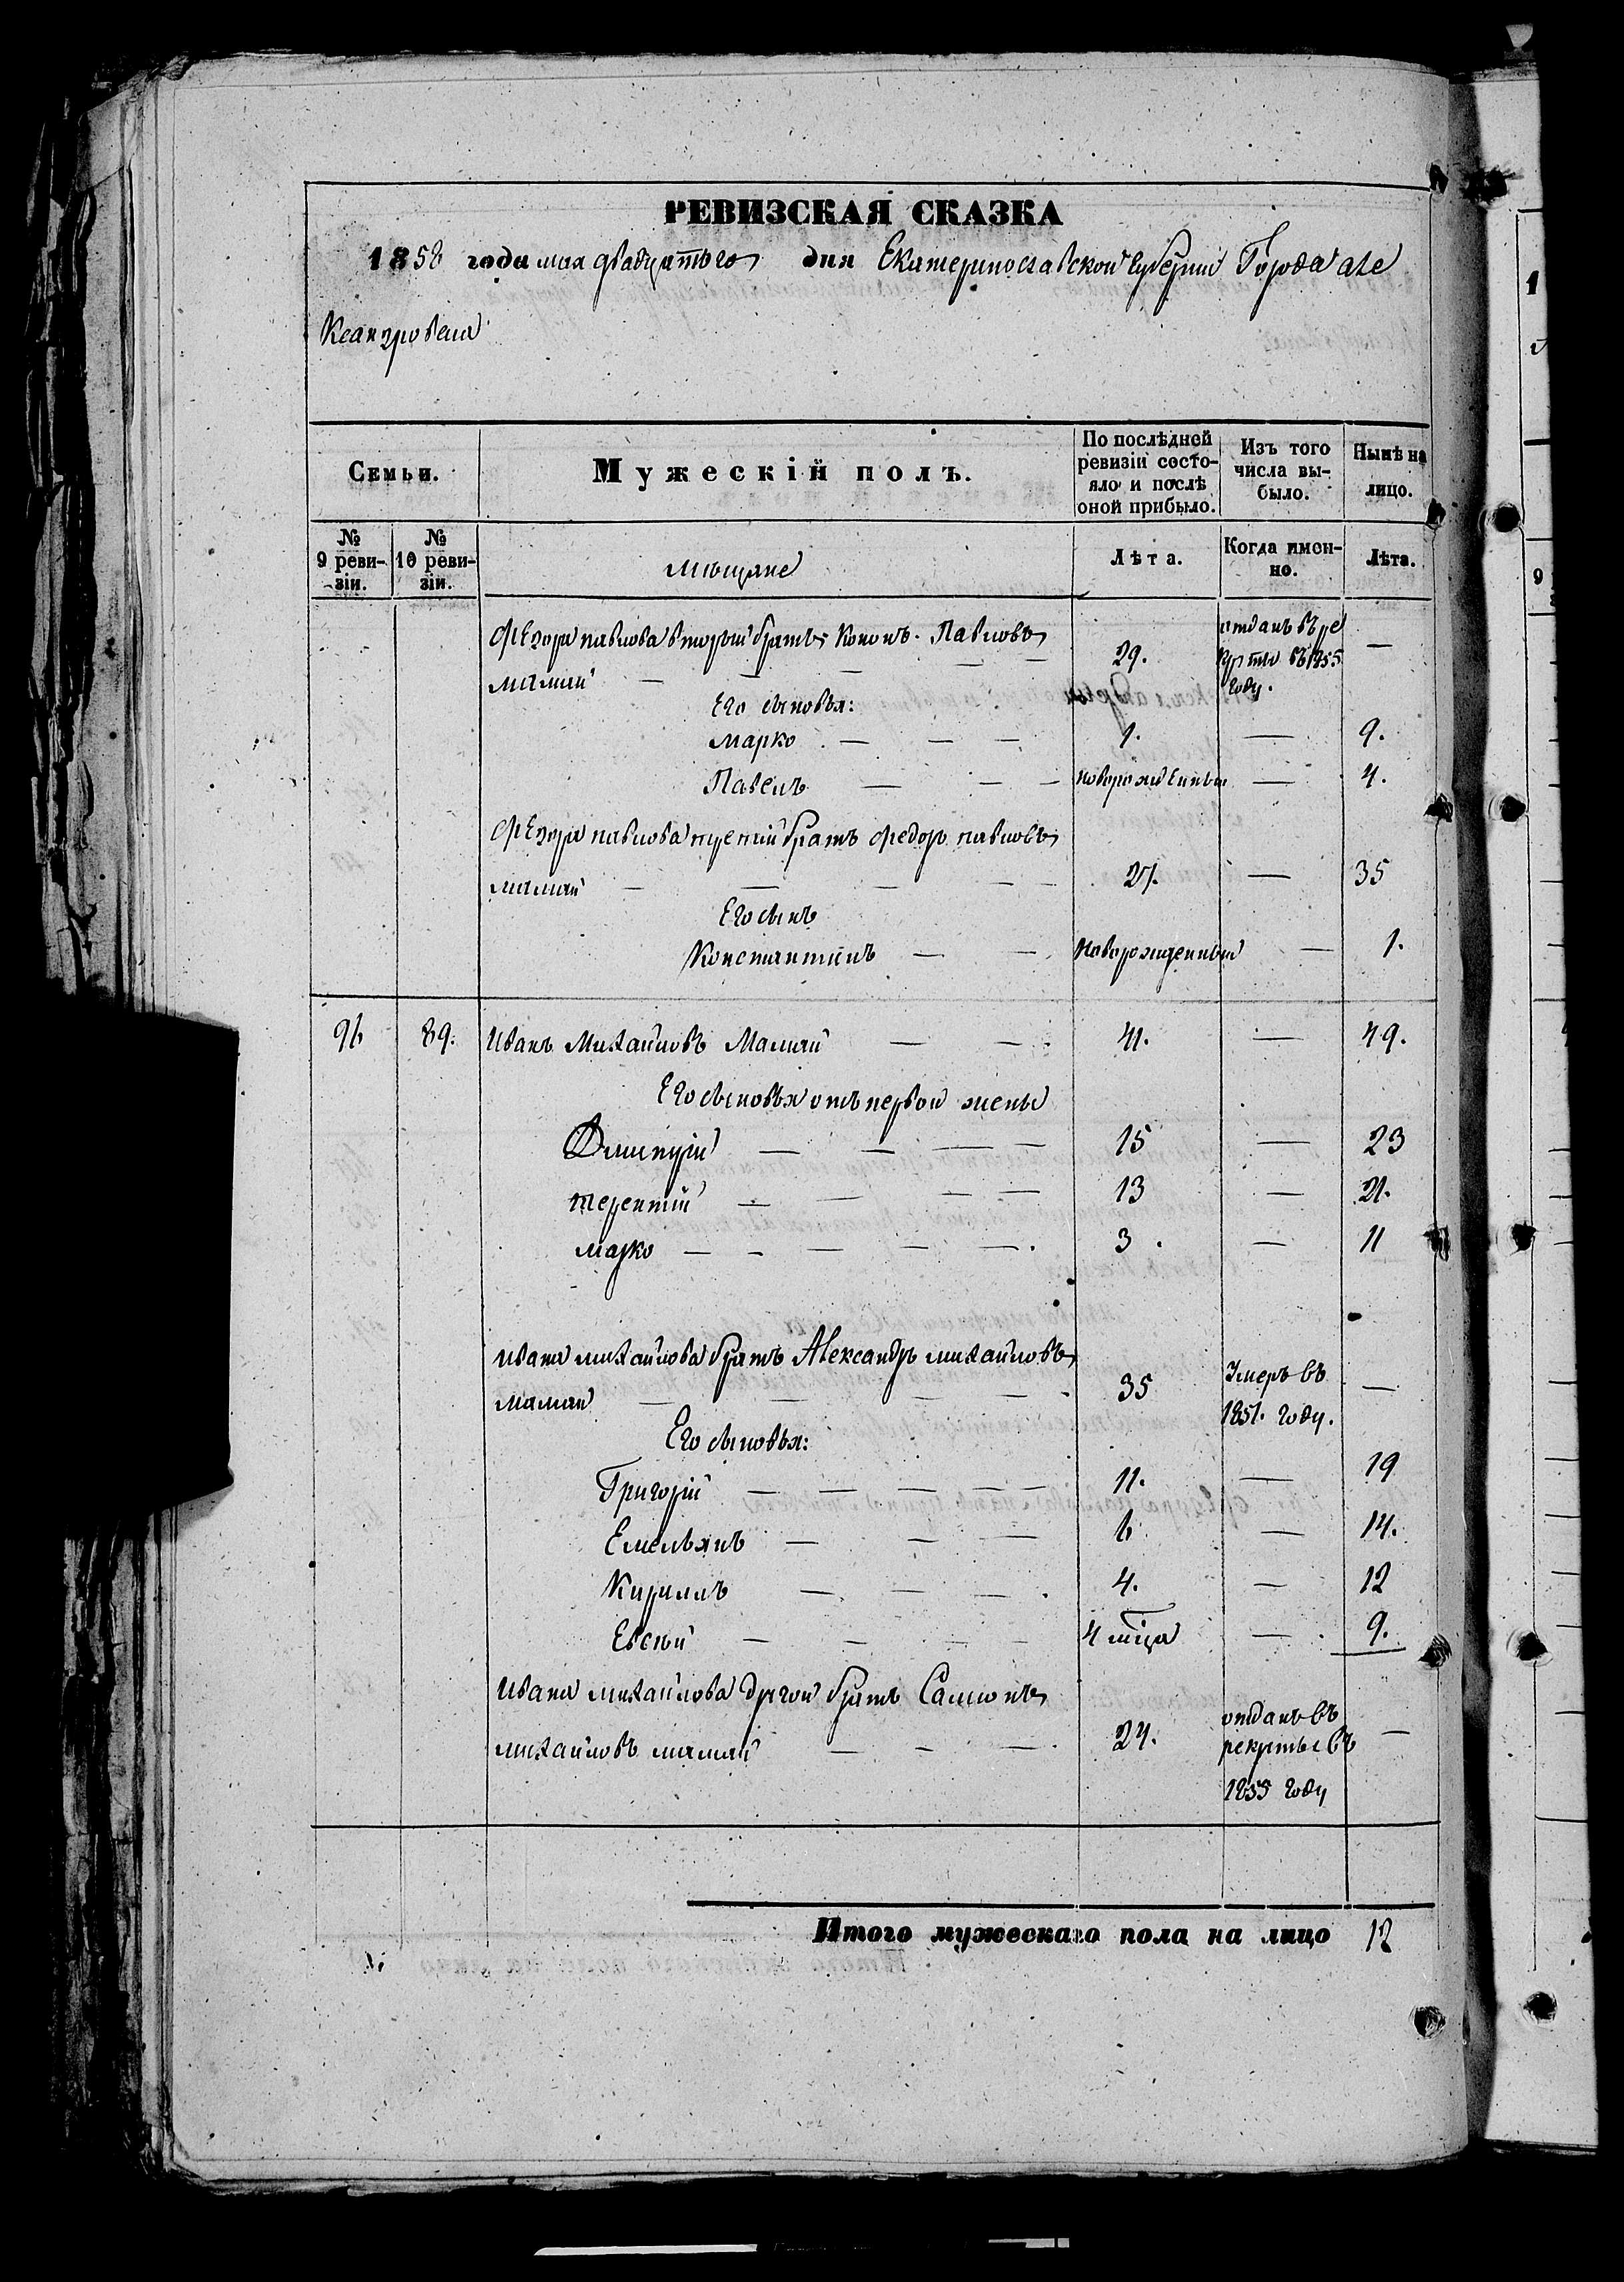 РЕВИЗСКАЯ СКАЗКА
1858 года мая двадцатого дня Екатеринославской губернии Города Але
ксандровска
Семьи.
Мужескій полъ.
По послѣдней ревизіи состо-
яло и послѣ
оной прибыло.
Изъ того
числа вы-
было.
Нынѣ на
лицо.
№
9 реви-
зіи.
№
10 реви-
зіи.
мѣщане
Лѣта.
Когда имен-
но.
Лѣта.
Федора павлова вторый братъ Кононъ Павловъ
мамай — — — 29. отданъ въ ре
круты въ 1855
году. —
Его сыновья:
Марко — — — 1. — 9.
Павелъ — — — новорожденный — 4.
Федора павлова третий братъ федоръ павловъ
мамай — — — — — 27. — 35
Его сынъ
Константинъ — — Новорожденный — 1.
96 89. Иванъ Михайловъ Мамай — — 41. — 49.
Его сыновья отъ первой жены
Дмитрий — — — — 15 — 23
терентий — — — — 13 — 21.
марко — — — — — 3. — 11
Ивана михайлова братъ Александръ михайловъ
мамай — — — — — 35 Умеръ въ
1851. году. —
Его сыновья:
Григорій — — — — — 11. — 19
Емельянъ — — — 6 — 14.
Кирилъ — — — 4. — 12
Евсѣй — — — — 4 мѣца — 9.
Ивана михайлова другой братъ Самсонъ
михайловъ мамай — — — 24. отданъ въ
рекруты въ
1855 году —
Итого мужескаго пола на лицо 12